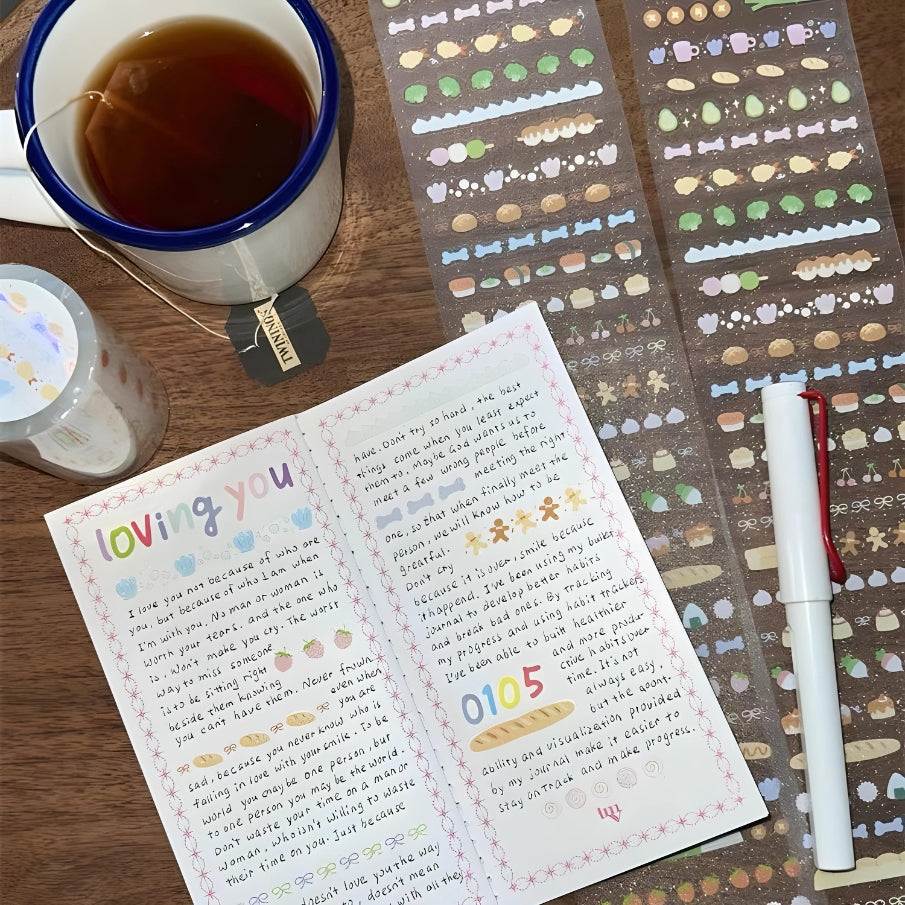 TWININGS
loving you
I love you not because of who are
you, but because of who I am when
I'm with you. No man or woman is
worth your tears, and the one who
is, won't make you cry. The worst
way to miss someone
is to be sitting right
beside them knowing
you can't have them. Never frown,
even when
you are
sad, because you never know who is
falling in love with your smile. To be
world you may be one person, but
to one person you may be the world.
Don't waste your time on a man or
woman, who isn't willing to waste
their time on you. Just because
doesn't love you the way
to, doesn't mean
with all they
have. Don't try so hard, the best
things come when you least expect
them to. Maybe God wants us to
meet a few wrong people before
meeting the right
one, so that when finally meet the
person, we will know how to be
greatful.
Don't cry
because it is over, smile because
it happend. I've been using my bullet
journal to develop better habits
and break bad ones. By tracking
my progress and using habit trackers
I've been able to built healthier
and more produ-
ctive habits over
time. It's not
always easy,
0105
but the aount-
ability and visualization provided
by my journal make it easier to
stay on track and make progress.